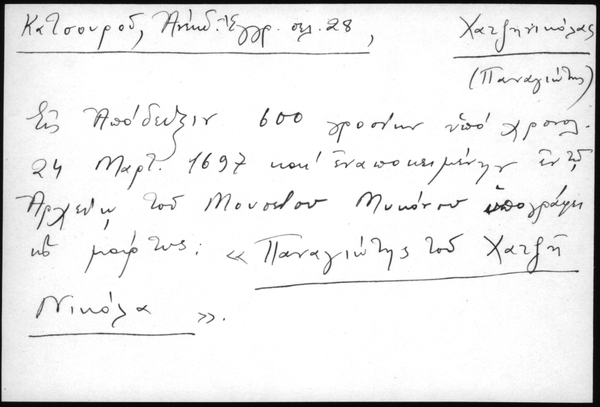 Κατσουροῦ, Ἀνέκδ. Ἔγγρ. σελ. 28, Χατζηνικόλας
(Παναγιώτης)
Εἰς Ἀπόδειξιν 600 γροσίων ὑπό χρονολ.
24 Μαρτ. 1697 καί ἐναποκειμένην ἐν τῷ
Ἀρχείῳ τοῦ Μουσείου Μυκόνου ὑπογράφει
ὡς μάρτυς: «Παναγιώτης τοῦ Χατζῆ
Νικόλα».